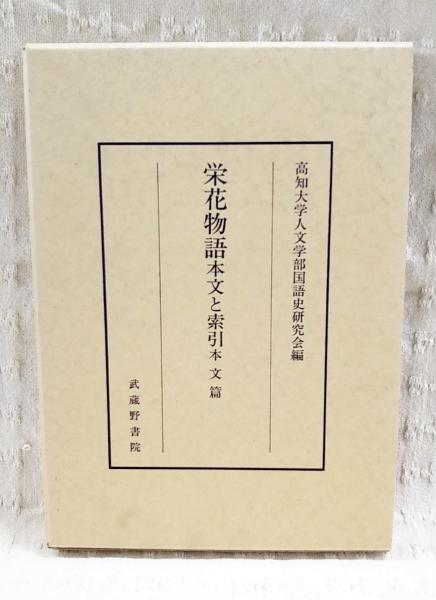 高知大学人文学部国語史研究会編
栄花物語本文と索引本文篇
武蔵野書院